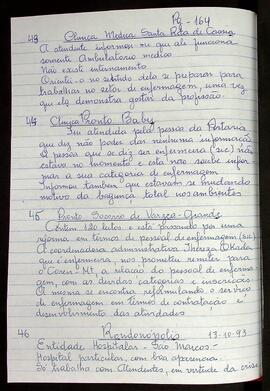 Pg - 164
43 Clínica Médica Santa Rita de Cássia
A atendente informou me que ali funciona
somente Ambulatório médico
Não existe internamento
Orientei-o no sentido dela se preparar para
trabalhar no setor de enfermagem, uma vez
que ela demonstra gostar da profissão
44 Clínica Pronto Baby
Fui atendida pela pessoa da Portaria
que diz não podes dar nenhuma informação
A pessoa que se diz ser enfermeira (sic) não
estava no momento e esta não soube infor
mar a sua categoria de enfermagem
Informou também que estavam se mudando
motivo da bagunça total nos ambientes
45 Pronto Socorro de Várzea-Grande
Contém 120 leitos e está passando por uma
reforma em termos de pessoal de enfermagem (sic)
A coordenadora administrativa Thereza
que é enfermeira, nos prometeu remeter para
o Coren MT, a relação do pessoal de enferma
gem, com as devidas categorias e inscrições
A mesma se encontra reformulando o serviço
de enfermagem em termos de contratação e
desenvolvimento das atividades
46 Rondonópolis 13-10-93
Entidade Hospitalar - São Marcos-
Hospital particular, com boa aparência.
Só trabalha com Atendentes, em virtude da crise